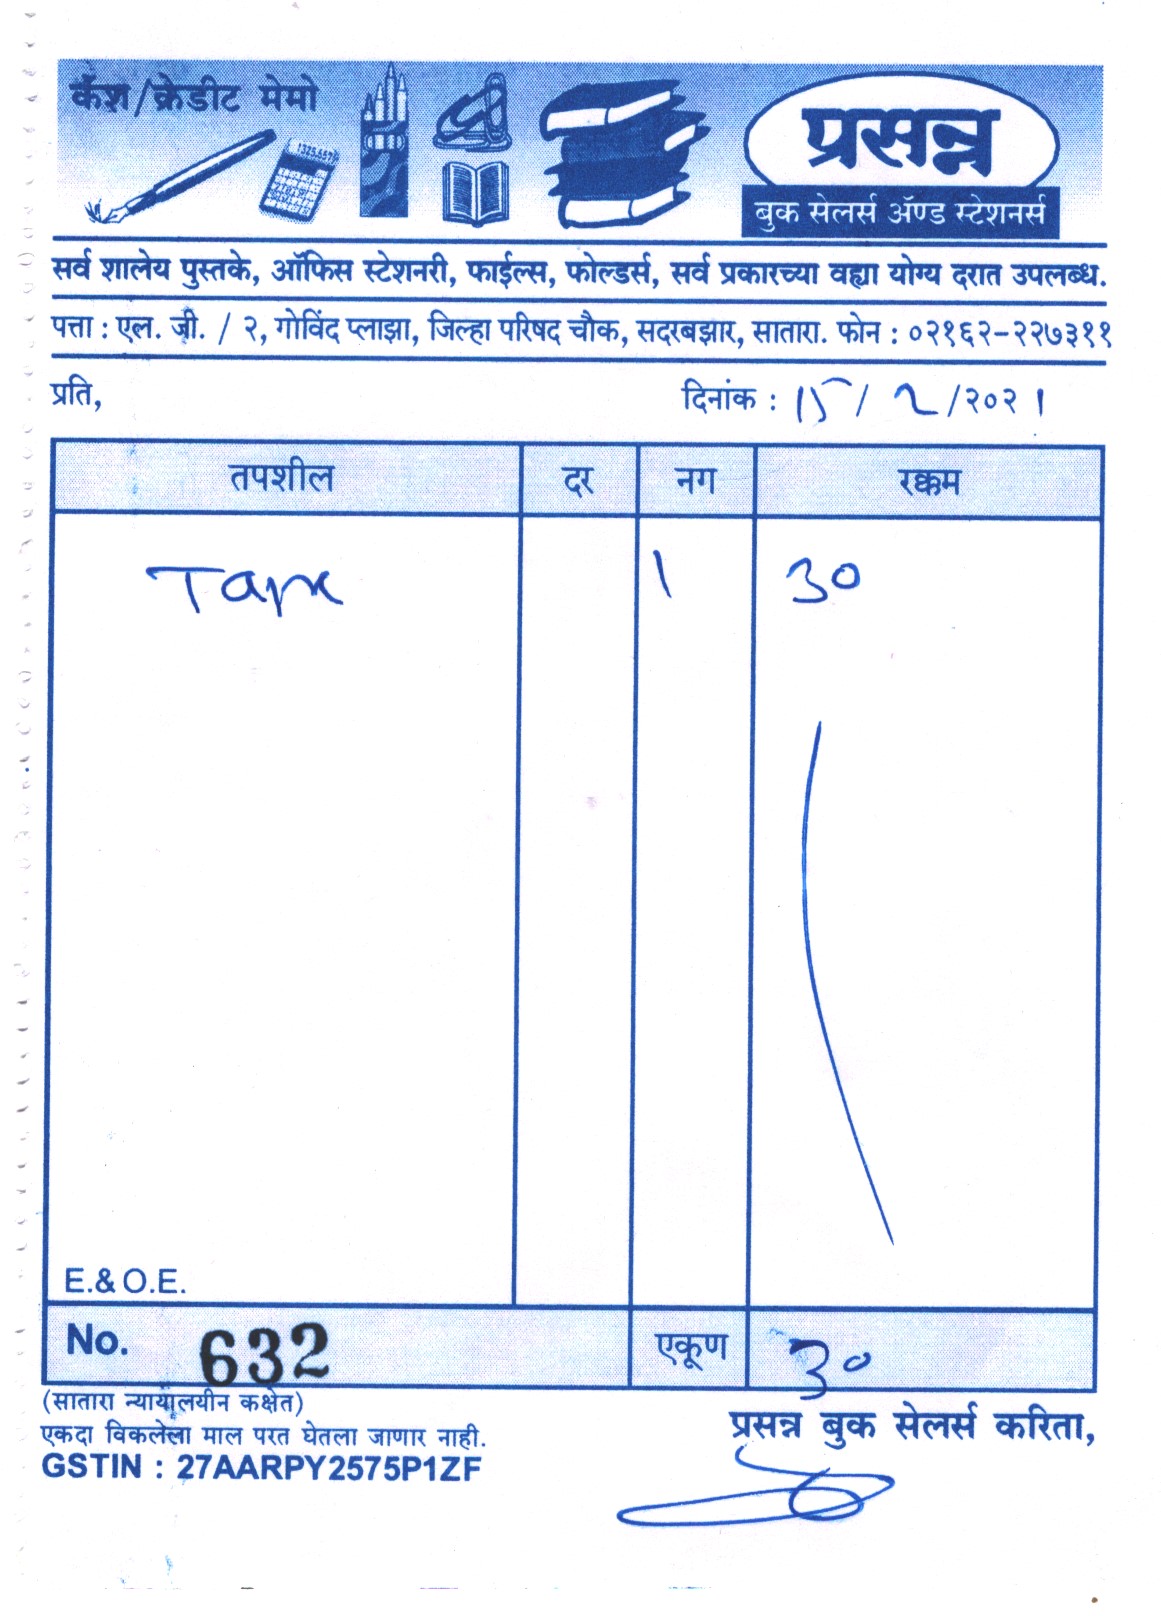 कॅश/क्रेडीट मेमो
प्रसन्न
बुक सेलर्स ॲण्ड स्टेशनर्स
सर्व शालेय पुस्तके, ऑफिस स्टेशनरी, फाईल्स, फोल्डर्स, सर्व प्रकारच्या वह्या योग्य दरात उपलब्ध.
पत्ता : एल. जी. / २, गोविंद प्लाझा, जिल्हा परिषद चौक, सदरबझार, सातारा. फोन : ०२१६२-२२७३११
प्रति, दिनांक : 15 / 2 /२०२१
तपशील दर नग रक्कम
Tape 1 30
E.& O.E.
No. 632 एकूण 30
(सातारा न्यायालयीन कक्षेत)
प्रसन्न बुक सेलर्स करिता,
एकदा विकलेला माल परत घेतला जाणार नाही.
GSTIN : 27AARPY2575P1ZF